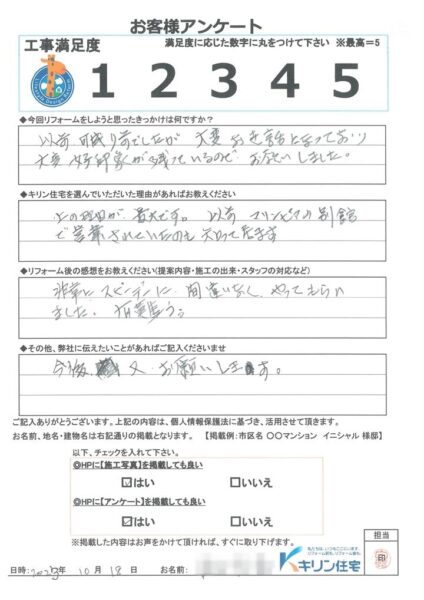 お客様アンケート
工事満足度
満足度に応じた数字に丸をつけて下さい ※最高=5
1 2 3 4 5
◆今回リフォームをしようと思ったきっかけは何ですか?
大変お世話になっており
大変好印象が残っているので お願いしました。
◆キリン住宅を選んでいただいた理由があればお教えください
上の理由が最大です。以前 マリンピアの別館
で営業されていたのも知って居ます
◆リフォーム後の感想をお教えください(提案内容・施工の出来・スタッフの対応など)
非常に スピーディに 間違いなく やってもらい
ました。有難う。
◆その他、弊社に伝えたいことがあればご記入くださいませ
今後 又 お願いします。
ご記入ありがとうございます。上記の内容は、個人情報保護法に基づき、活用させて頂きます。
お名前、地名・建物名は右記通りの掲載となります。 【掲載例:市区名 〇〇マンション イニシャル 様邸】
以下、チェックを入れて下さい。
◎HPに【施工写真】を掲載しても良い
☑はい □いいえ
◎HPに【アンケート】を掲載しても良い
☑はい □いいえ
※掲載した内容はお声をかけて頂ければ、すぐに取り下げます。
担当
印
キリン住宅
日時:2023年 10月 18日 お名前: